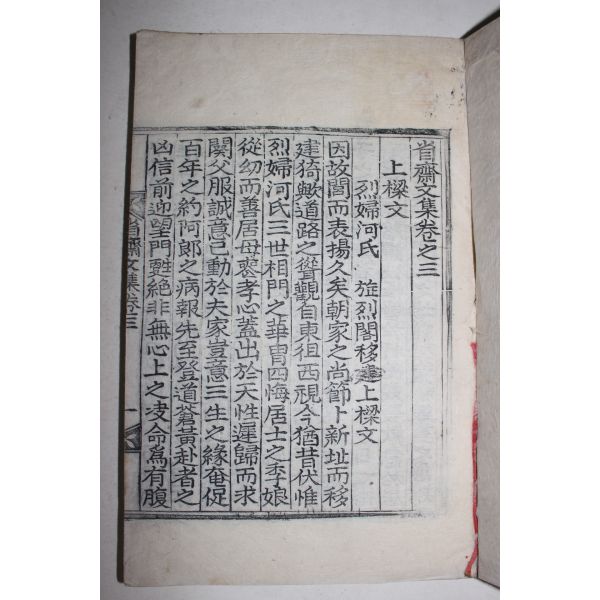 省齋文集卷之三
上樑文
烈婦河氏 旌烈閣移建上樑文
因故閭而表揚久矣朝家之尚節卜新址而移
建猗歟道路之聳觀自東徂西視今猶昔伏惟
烈婦河氏三世相門之華胄四悔居士之季娘
從幼而善居母喪孝心蓋出於天性遲歸而求
闋父服誠意已動於夫家豈意三生之緣奄促
百年之約阿郞之病報先至登道蒼黃赴者之
凶信前迎望門甦絶非無心上之凌命爲有腹
省齋文集卷三
一